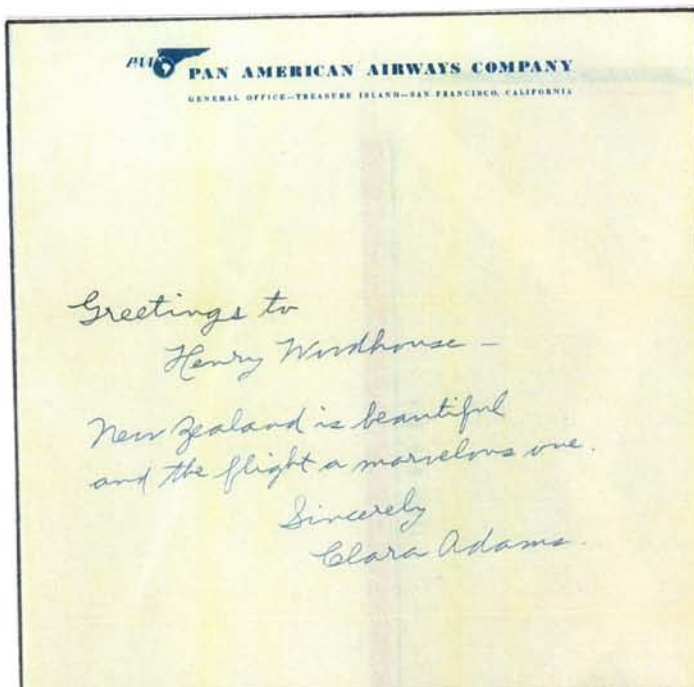 PAA
PAN AMERICAN AIRWAYS COMPANY
GENERAL OFFICE—TREASURE ISLAND—SAN FRANCISCO, CALIFORNIA
Greetings to
Henry Woodhouse —
New Zealand is beautiful
and the flight a marvelous one.
Sincerely
Clara Adams.